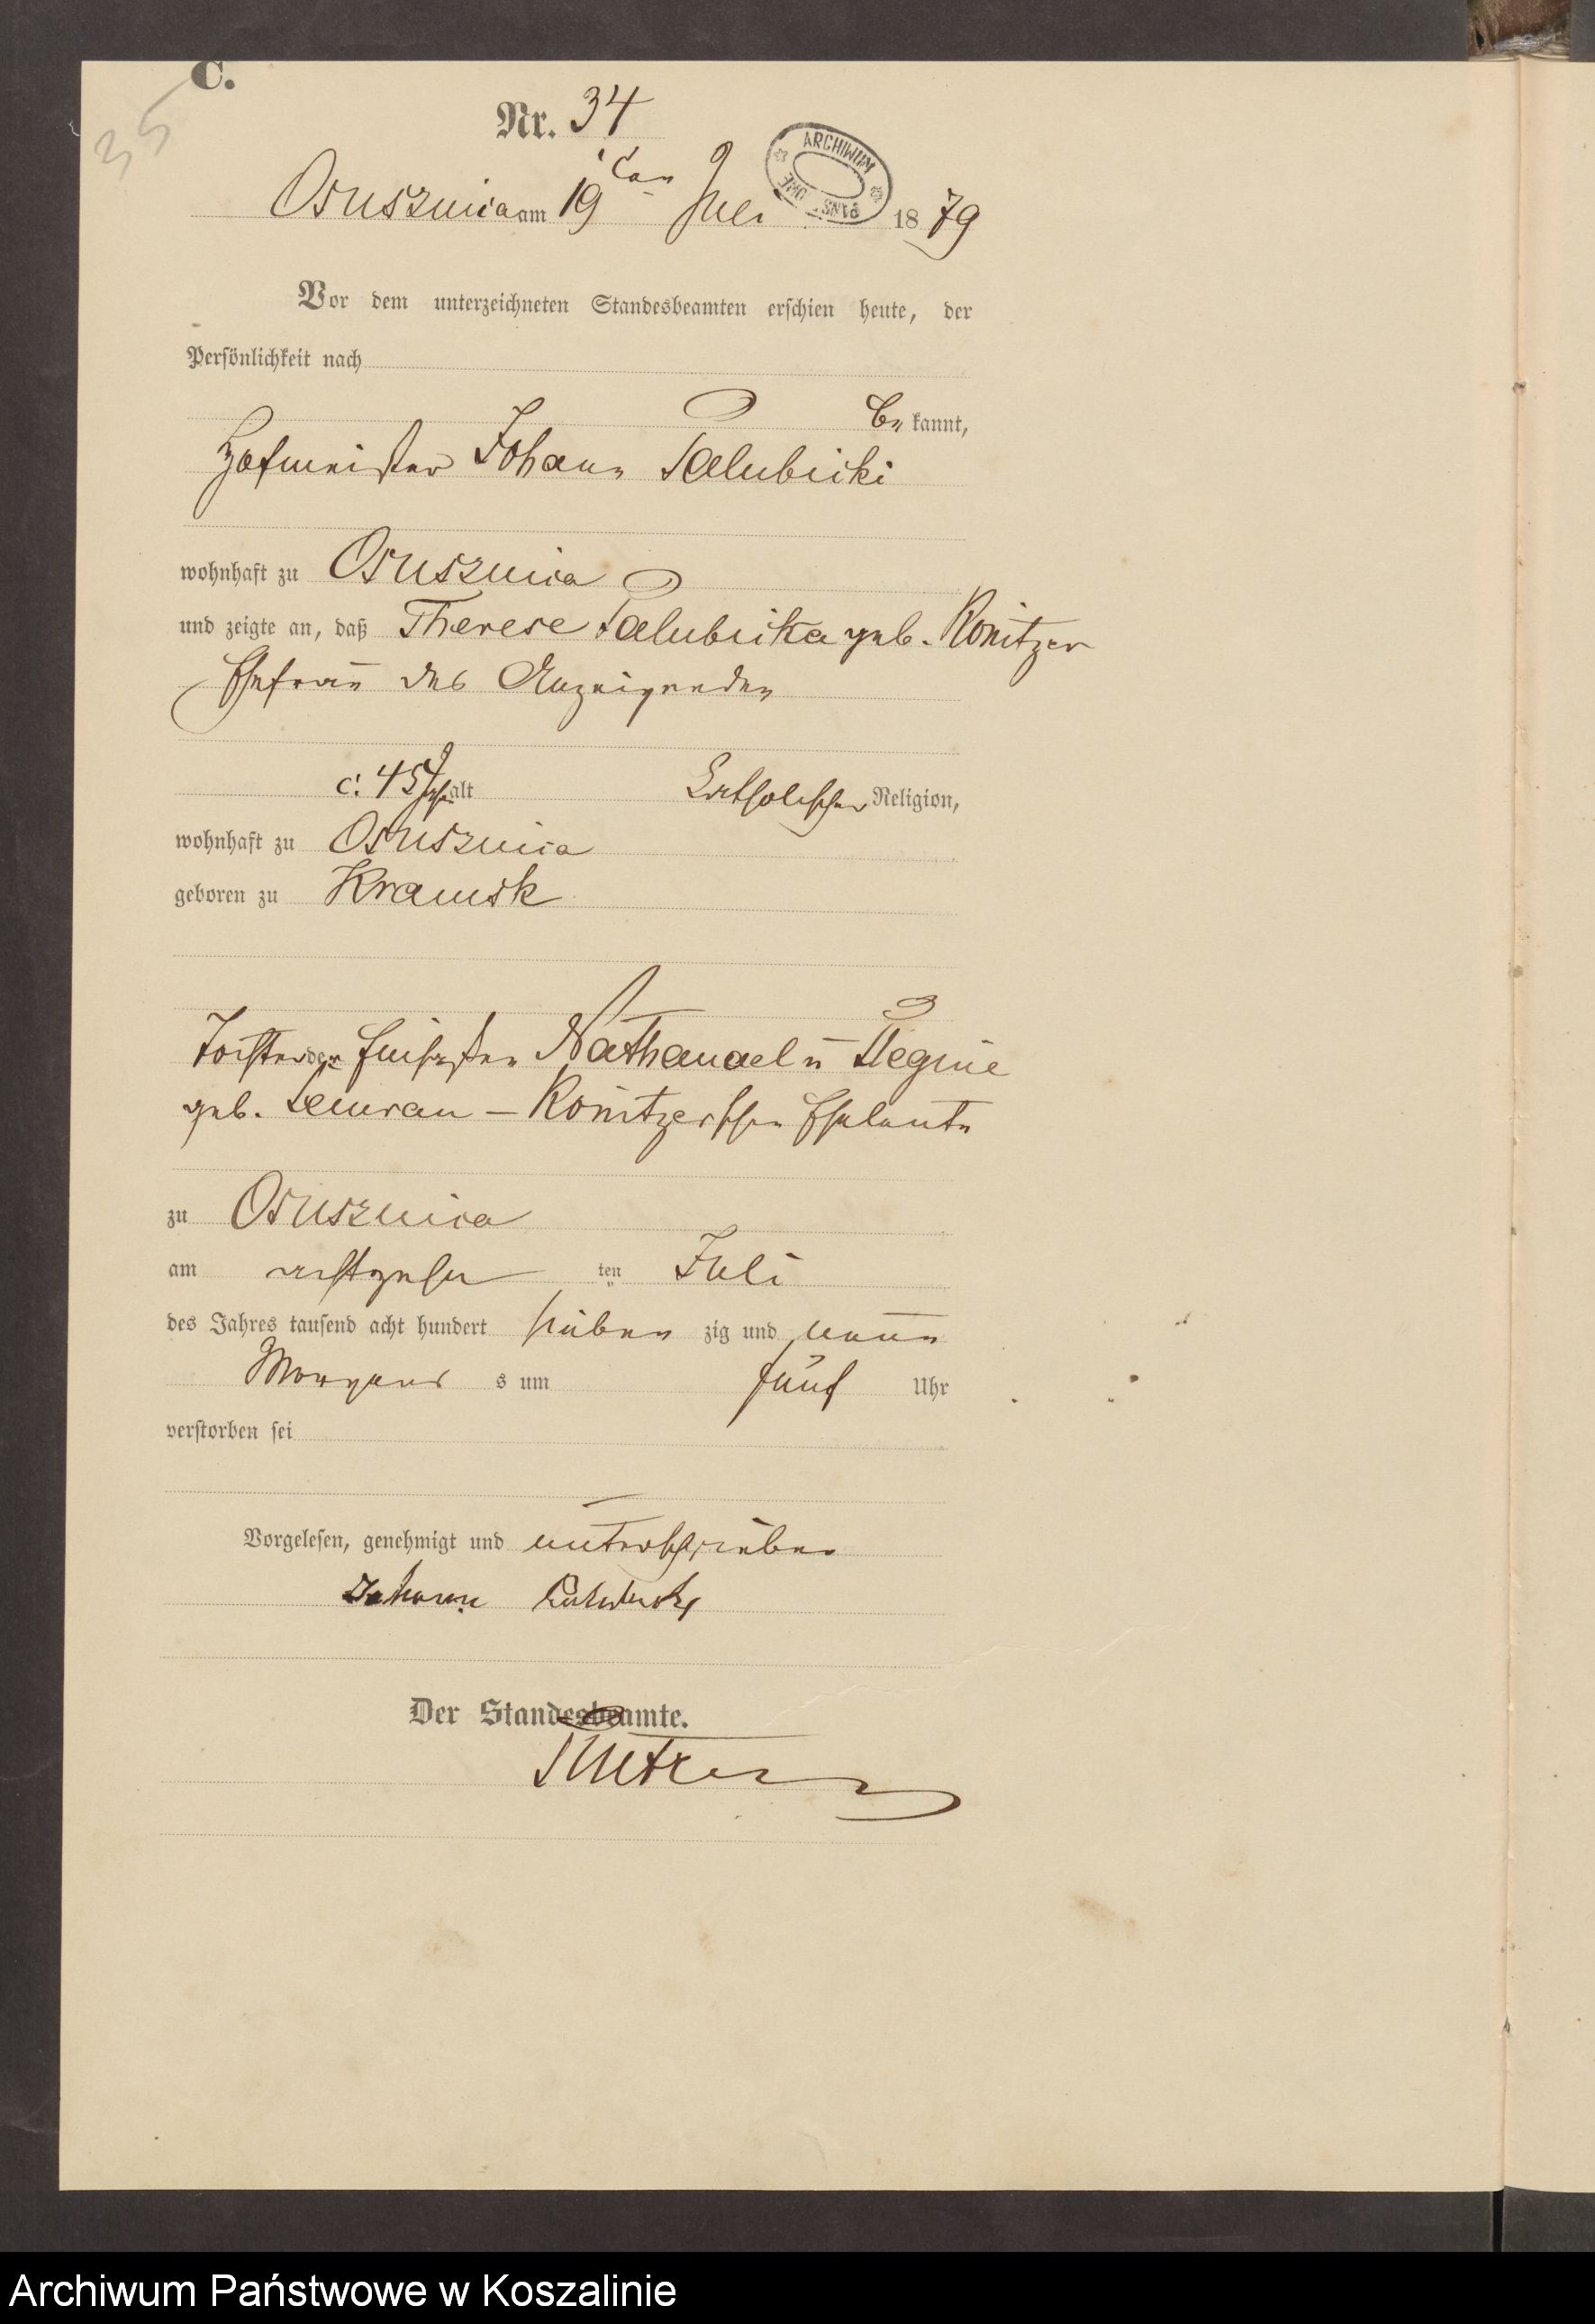 C.
35
Nr. 34
Osusznica am 19 ten Juli 1879
ARCHIWUM PAŃSTWOWE
Vor dem unterzeichneten Standesbeamten erschien heute, der
Persönlichkeit nach
be kannt,
Hofmeister Johann Palubicki
wohnhaft zu Osusznica
und zeigte an, daß Therese Palubicka geb. Konitzer
Ehefrau des Anzeigenden
c. 45 Jahr alt Katholischer Religion,
wohnhaft zu Osusznica
geboren zu Kramsk
Tochter der Einsaßen Nathanael u Regine
geb. – Konitzerschen Eheleute
zu Osusznica
am achtzehn ten Juli
des Jahres tausend acht hundert sieben zig und neun
Morgens s um fünf Uhr
verstorben sei
Vorgelesen, genehmigt und unterschrieben
Johann
Der Standesbeamte.
Archiwum Państwowe w Koszalinie